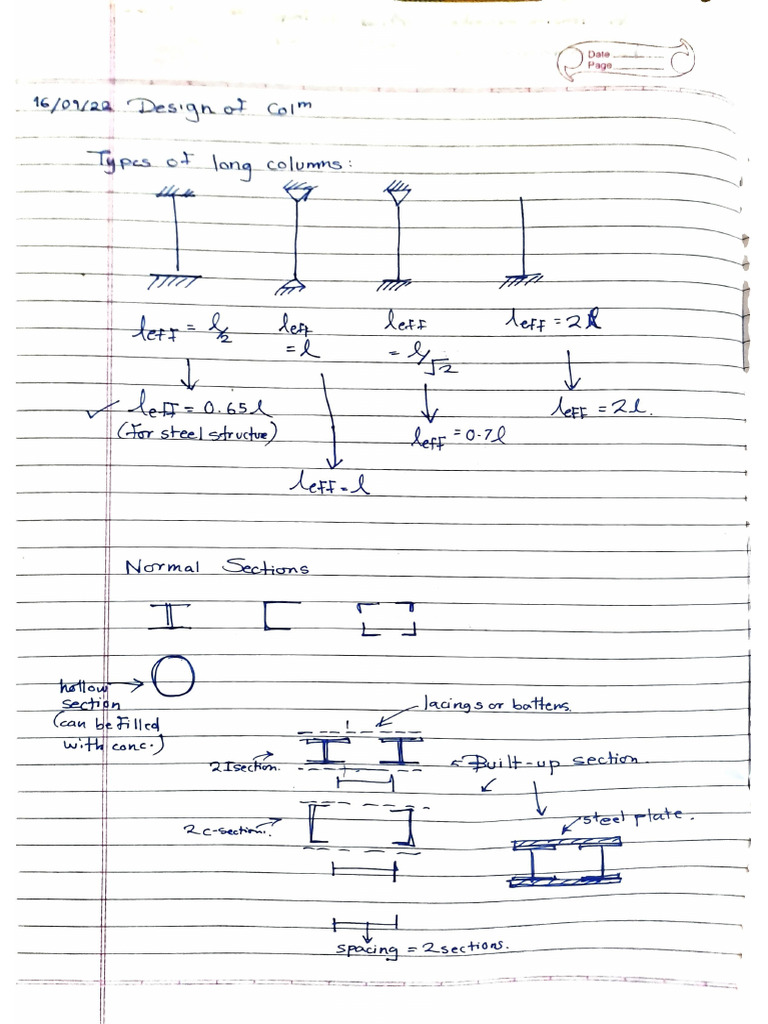 Date
Page
16/09/22 Design of Colm
Types of long columns:
leff = l/2
leff = l
leff = l/√2
leff = 2l
leff = 0.65l
(for steel structure)
leff = l
leff = 0.7l
leff = 2l.
Normal Sections
hollow section
(can be filled
with conc.)
lacings or battens.
2 I section.
Built-up section.
2 c-section.
steel plate.
spacing = 2 sections.